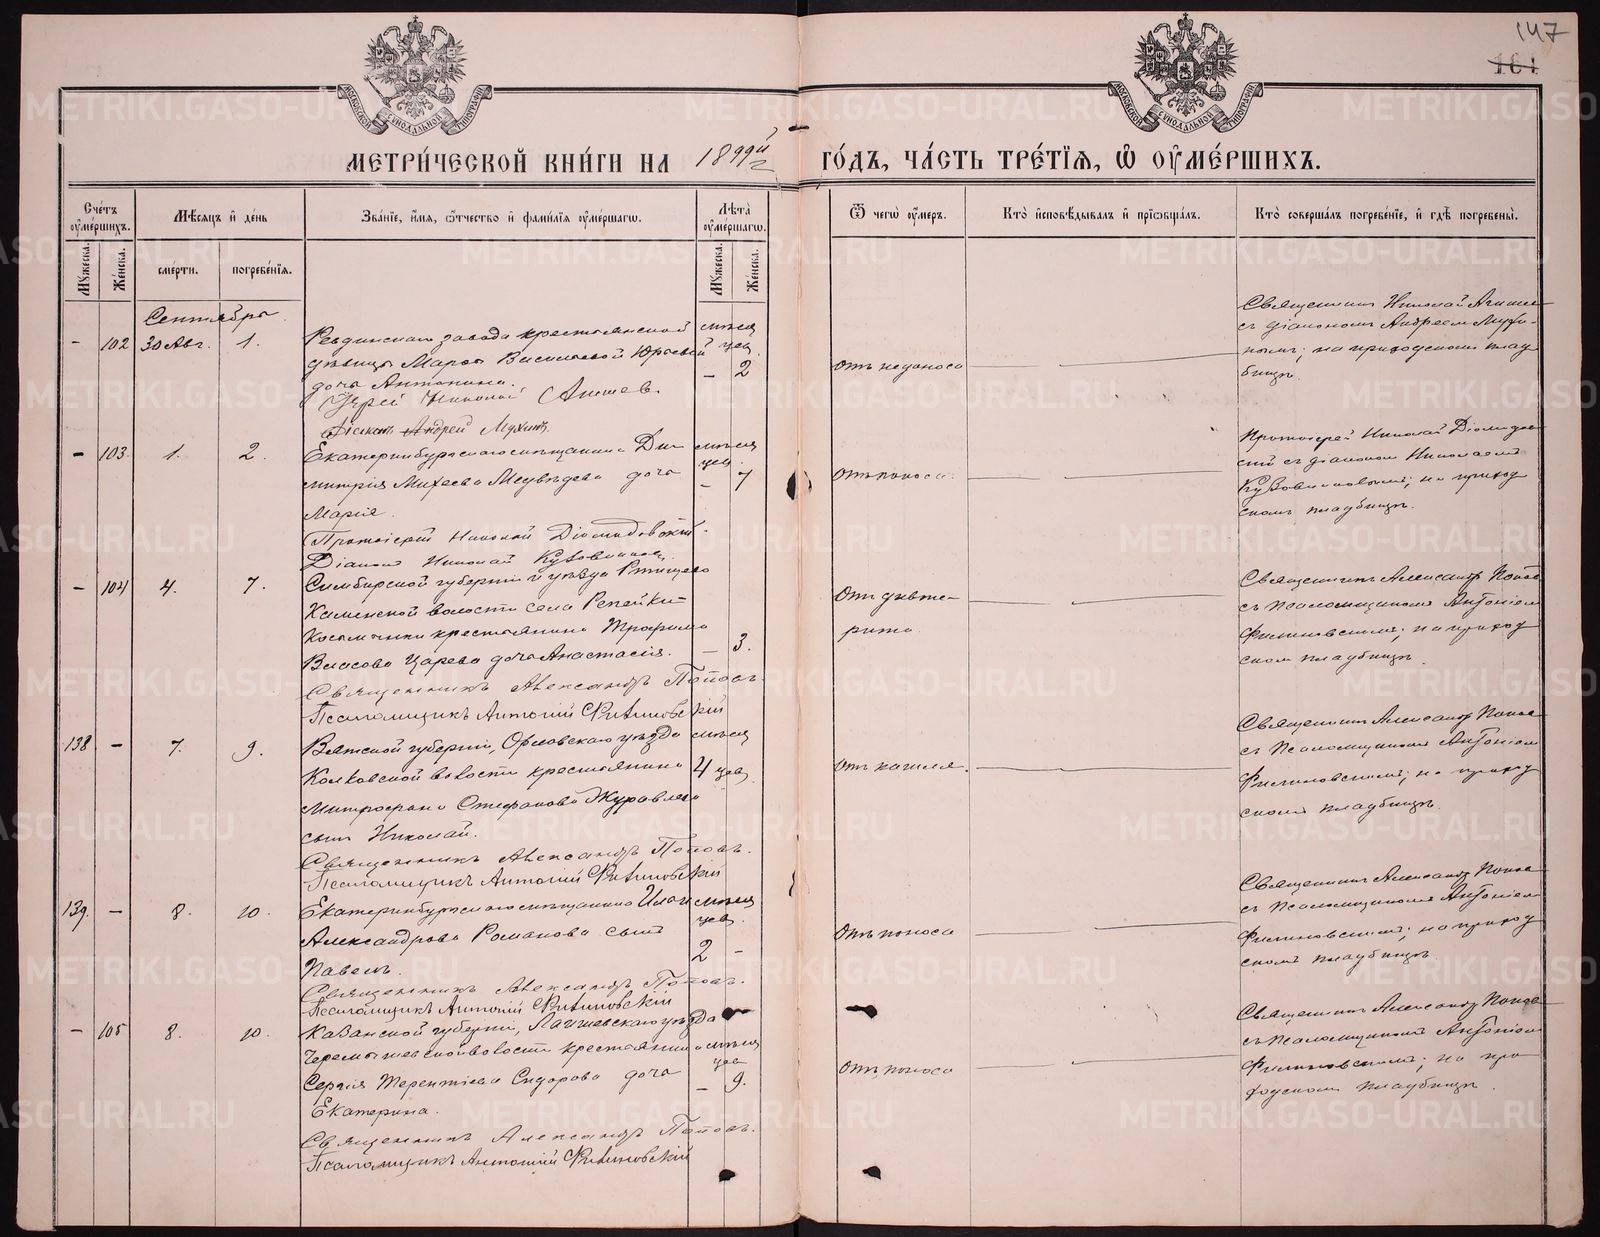 147
161
МОСКОВСКОЙ СѴНОДАЛЬНОЙ ТИПОГРАФІИ
МОСКОВСКОЙ СѴНОДАЛЬНОЙ ТИПОГРАФІИ
МЕТРИ́ЧЕСКОЙ КНИ́ГИ НА 1899й ГО́ДЪ, ЧА́СТЬ ТРЕ́ТІѦ, Ѡ҆ ОУ҆МЕ́РШИХЪ.
Сче́тъ оу҆ме́ршихъ.
Мѣ́сяцъ и҆ де́нь
Зва́ніе, и҆́мя, ѻ҆́тчество и҆ фами́лія оу҆ме́ршагѡ.
Лѣ́та оу҆ме́ршагѡ.
Ѿ чегѡ̀ оу҆́меръ.
Кто̀ и҆сповѣ́дывалъ и҆ прїѡбща́лъ.
Кто̀ соверша́лъ погребе́ніе, и҆ гдѣ̀ погребены̀.
Мꙋ́жеска.
Же́нска.
сме́рти.
погребе́нія.
Мꙋ́жеска.
Же́нска.
Сентября
- 102 30 Авг. 1.
Ревдинскаго завода крестьянской
дѣвицы Марѳы Васильевой Юрьевой
дочь Антонина.
Іерей Николай Агишев.
Діаконъ Андрей Мухинъ
мѣсяцев
- 2
отъ недоноса
Священникъ Николай Агишев
съ діакономъ Андреем Мухи-
нымъ; на приходскомъ клад-
бищѣ.
- 103. 1. 2.
Екатеринбургскаго мѣщанина Ди-
митрія Михеева Медвѣдева дочь
Марія.
Протоіерей Николай Діомидовскій
Діаконъ Николай Кузовников
мѣсяцев.
- 7
отъ поноса.
Протоіерей Николай Діомидов-
скій съ діаконом Николаемъ
Кузовниковымъ; на приход-
скомъ кладбищѣ.
- 104 4. 7.
Симбирской губерніи и уѣзда Ртищево
Каменской волости села Репейки-
Косьминки крестьянина Трофима
Власова Царева дочь Анастасія.
Священникъ Александръ Поповъ.
Псаломщикъ Антоній Филиновскій
- 3.
отъ дифте-
рита.
Священникъ Александръ Попов
съ псаломщикомъ Антоніем
Филиновскимъ; на приход-
скомъ кладбищѣ.
138. - 7. 9.
Вятской губерніи, Орловскаго уѣзда
Колковской волости крестьянина
Митрофана Стефанова Журавлева
сынъ Николай.
Священникъ Александръ Поповъ.
Псаломщикъ Антоній Филиновскій
мѣсяцев
4
отъ кашля.
Священникъ Александръ Попов
съ псаломщикомъ Антоніем
Филиновскимъ; на приход-
скомъ кладбищѣ.
139. - 8. 10.
Екатеринбургскаго мѣщанина Иліи
Александрова Романова сынъ
Павелъ.
Священникъ Александръ Поповъ.
Псаломщикъ Антоній Филиновскій
мѣсяцев.
2 -
отъ поноса
Священникъ Александръ Попов
съ псаломщикомъ Антоніем
Филиновскимъ; на приход-
скомъ кладбищѣ.
- 105 8. 10.
Казанской губерніи, Лаишевскаго уѣзда
Черемышевской волости крестьянина
Сергія Терентіева Сидорова дочь
Екатерина.
Священникъ Александръ Поповъ.
Псаломщикъ Антоній Филиновскій
мѣсяцев
- 9.
отъ поноса
Священникъ Александръ Попов
съ псаломщикомъ Антоніем
Филиновскимъ; на при-
ходскомъ кладбищѣ.
METRIKI.GASO-URAL.RU